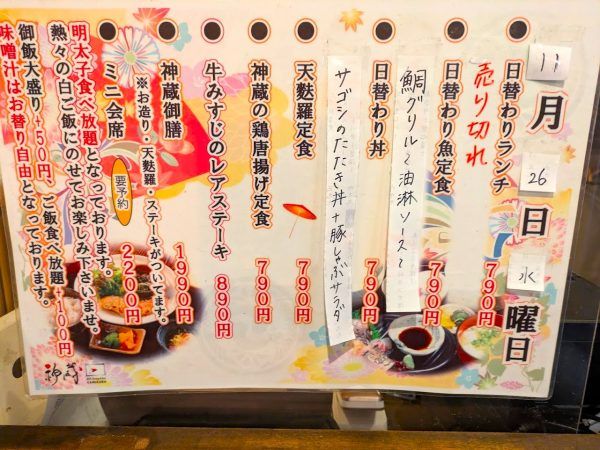 11月26日水曜日
日替わりランチ 790円
売り切れ
日替わり魚定食 790円
鯛グリル〜油淋ソース〜
日替わり丼 790円
サゴシのたたき丼+豚しゃぶサラダ
天麩羅定食 790円
神蔵の鶏唐揚げ定食 790円
牛みすじのレアステーキ 890円
神蔵御膳 1990円
※お造り・天麩羅・ステーキがついてます。
ミニ会席 要予約 2200円
明太子食べ放題となっております。
熱々の白ご飯にのせてお楽しみ下さいませ。
御飯大盛り+50円、ご飯食べ放題+100円
味噌汁はお替り自由となっております。
神蔵